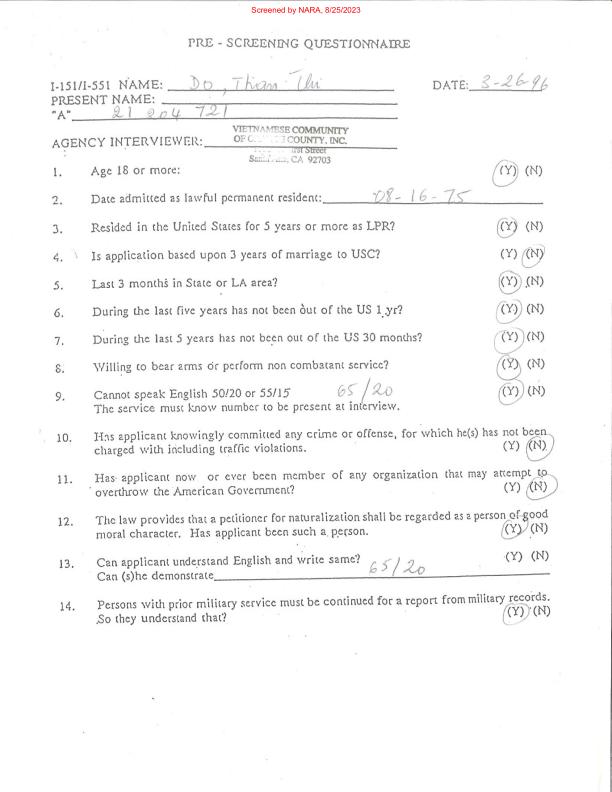 Screened by NARA, 8/25/2023
PRE - SCREENING QUESTIONNAIRE
I-151/I-551 NAME: Do, Thian Thi DATE: 3-26-96
PRESENT NAME:
"A" 21 204 721
VIETNAMESE COMMUNITY
AGENCY INTERVIEWER: OF COUNTY, INC.
Street
CA 92703
1. Age 18 or more: (Y) (N)
2. Date admitted as lawful permanent resident: 08-16-75
3. Resided in the United States for 5 years or more as LPR? (Y) (N)
4. Is application based upon 3 years of marriage to USC? (Y) (N)
5. Last 3 months in State or LA area? (Y) (N)
6. During the last five years has not been out of the US 1 yr? (Y) (N)
7. During the last 5 years has not been out of the US 30 months? (Y) (N)
8. Willing to bear arms or perform non combatant service? (Y) (N)
9. Cannot speak English 50/20 or 55/15 65/20 (Y) (N)
The service must know number to be present at interview.
10. Has applicant knowingly committed any crime or offense, for which he(s) has not been
charged with including traffic violations. (Y) (N)
11. Has applicant now or ever been member of any organization that may attempt to
overthrow the American Government? (Y) (N)
12. The law provides that a petitioner for naturalization shall be regarded as a person of good
moral character. Has applicant been such a person. (Y) (N)
13. Can applicant understand English and write same? (Y) (N)
Can (s)he demonstrate 65/20
14. Persons with prior military service must be continued for a report from military records.
So they understand that? (Y) (N)